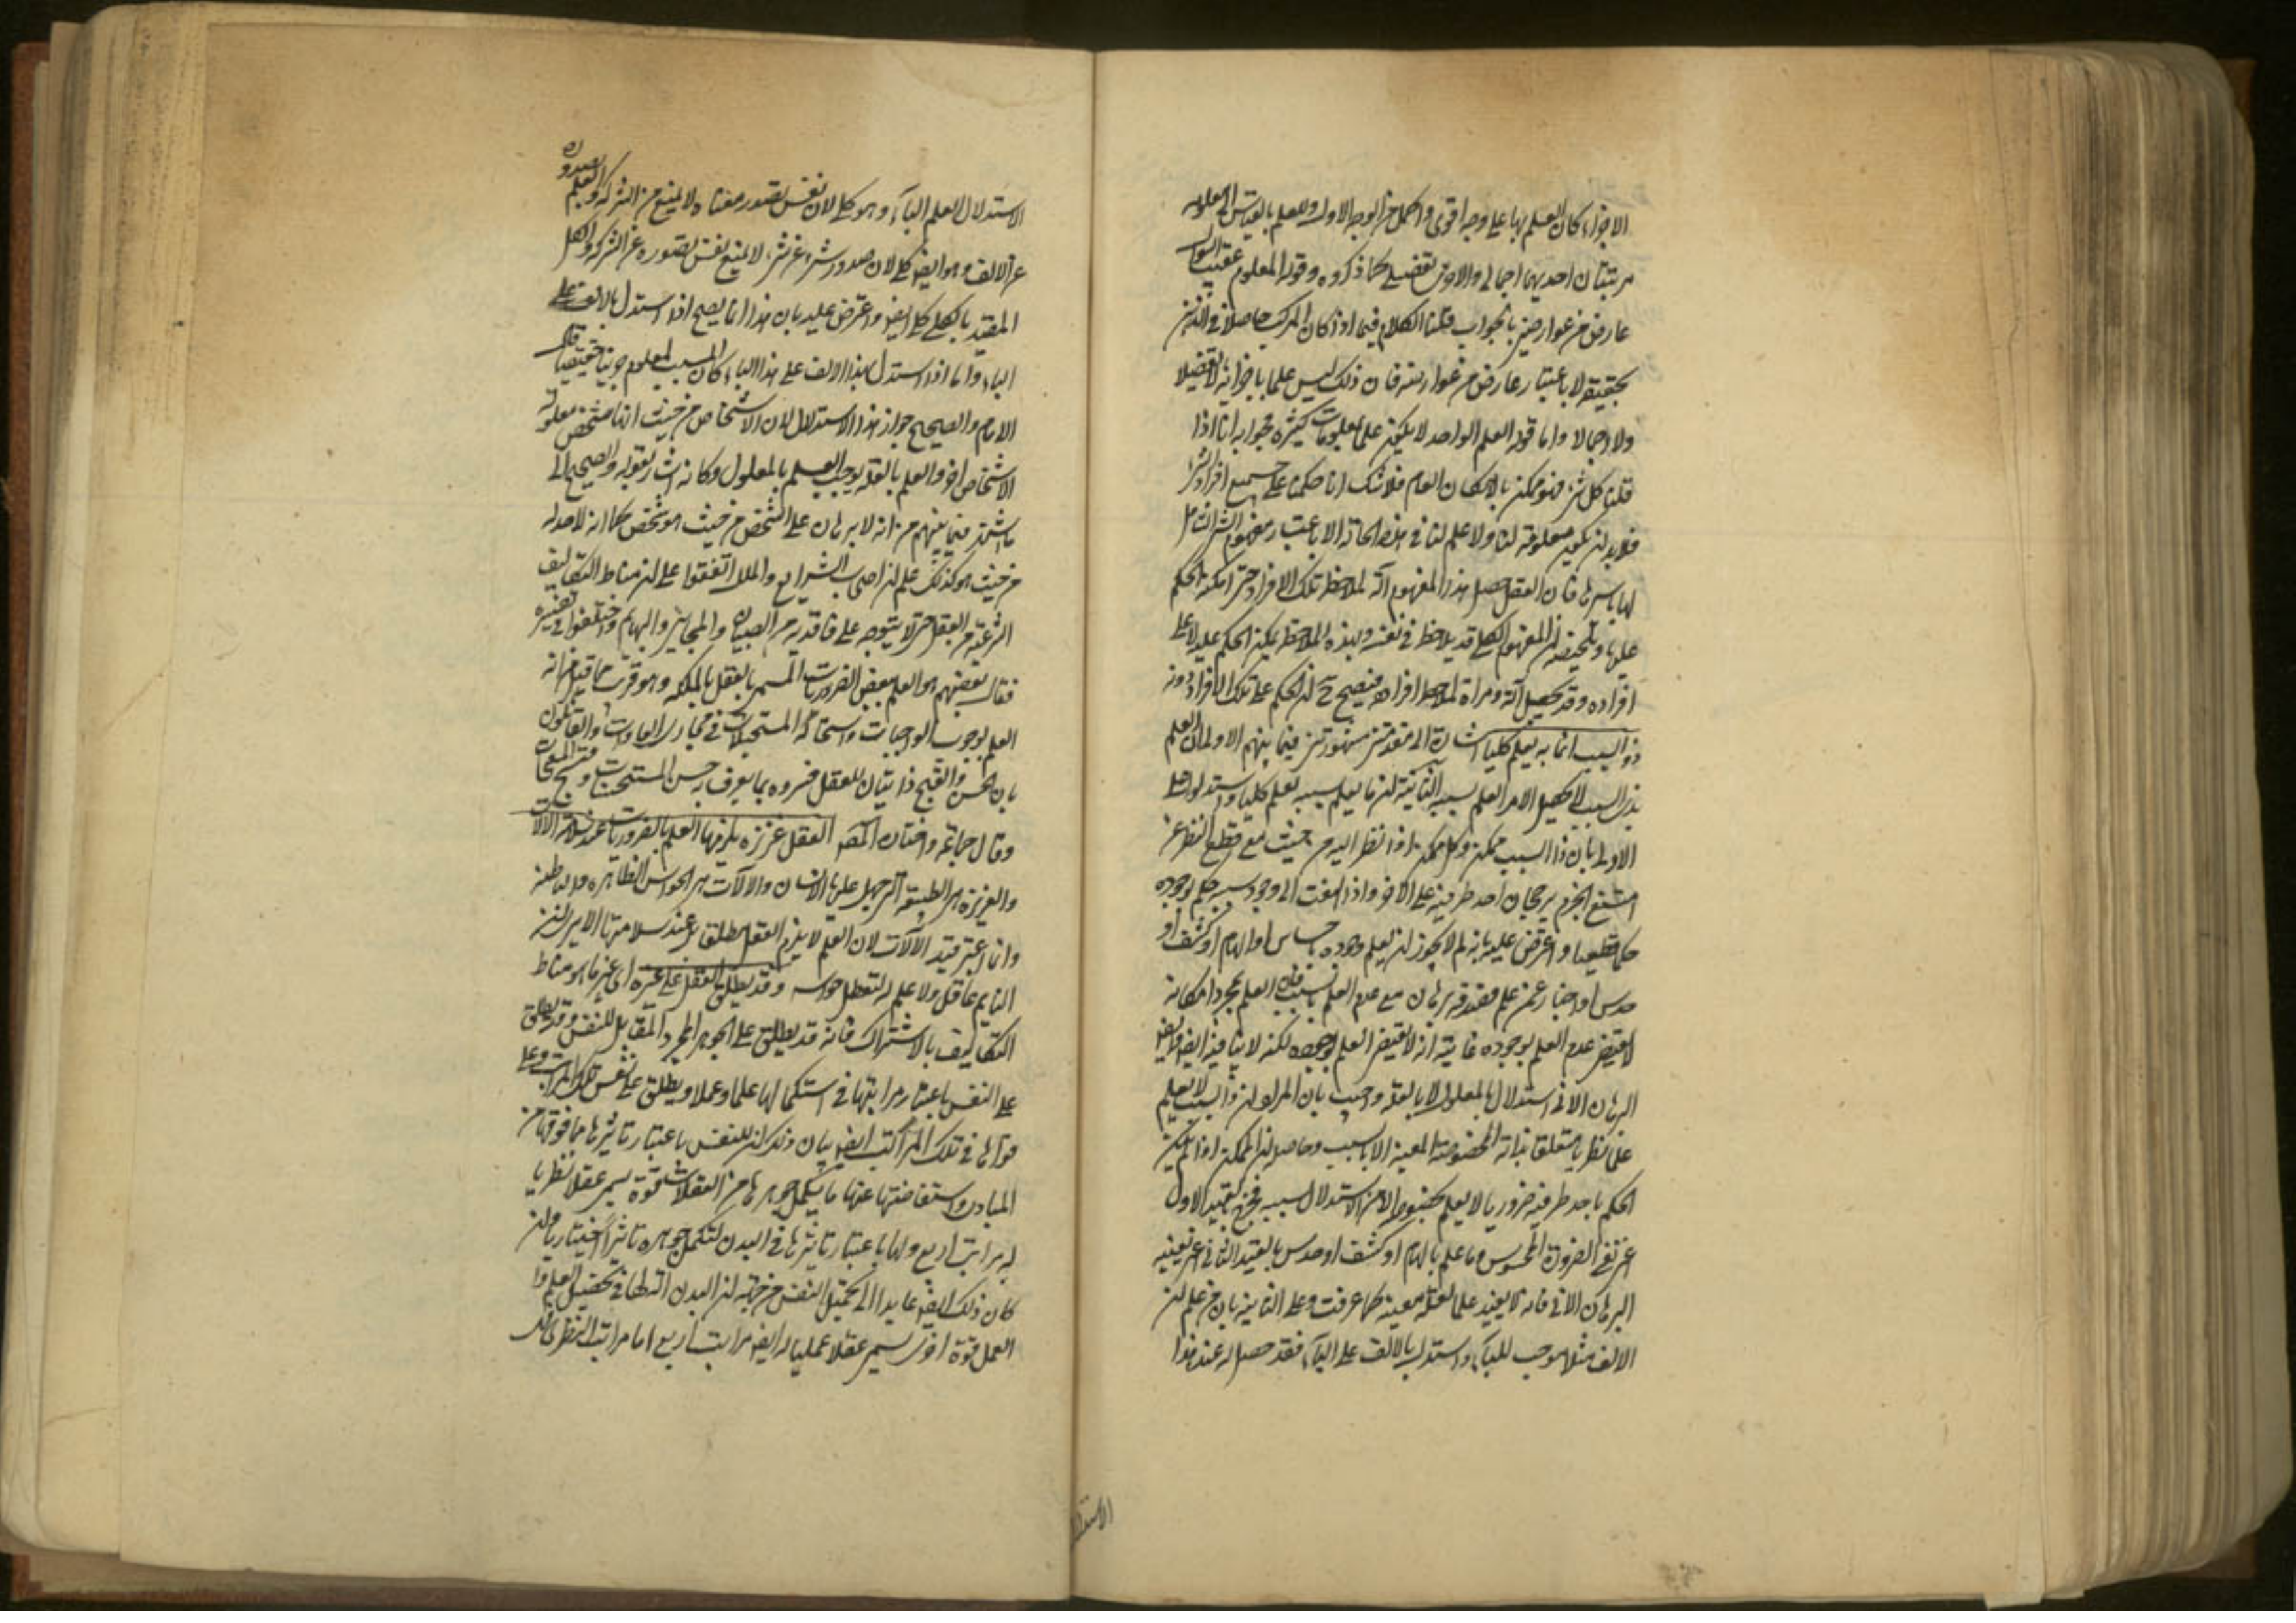 الاجزاء كان العلم بها على وجه اقوى واكمل من الوجه الاول وللعلم بالقياس الى المعلوم
مرتبتان احديهما اجمالى والاخرى تفصيلى كما ذكروه وقوله المعلوم عقيب السؤال
عارض من عوارض بالجواب قلنا الكلام فيما اذا كان المركب حاصلا فى الذهن
بحقيقته لا باعتبار عارض من عوارضه فان ذلك ليس علما باجزائه لا تفصيلا
ولا اجمالا واما قوله العلم الواحد لا يكون علما بمعلومات كثيرة فجوابه انا اذا
قلنا كل شىء فهو ممكن بالامكان العام فلا شك انا حكمنا على جميع افراد الشىء
فلا بد ان يكون معلومة لنا ولا علم لنا فى هذه الحالة الا باعتبار مفهوم الشىء الشامل
لها باسرها فان العقل جعل هذا المفهوم آلة لملاحظة تلك الافراد حتى امكنه الحكم
عليها وتلخيصه ان المفهوم الكلى قد يلاحظ فى نفسه وبهذه الملاحظة يمكن الحكم عليه لا على
افراده وقد يجعل آلة ومرآة لملاحظة افراده فيصح ح ان يحكم على تلك الافراد دونه
ذو السبب انما به يعلم كليا اشارة الى مقدمتين مشهورتين فيما بينهم الاولى ان العلم
بذى السبب لا يحصل الا من العلم بسببه الثانية ان ما يعلم بسببه يعلم كليا واستدلوا على
الاولى بان ذا السبب ممكن وكل ممكن اذا نظر اليه من حيث مع قطع النظر عن
امتنع الجزم برجحان احد طرفيه على الآخر واذا التفت الى وجود سببه حكم بوجوده
حكما قطعيا واعترض عليه بانه لم لا يجوز ان يعلم وجوده باحساس او الهام او كشف او
حدس او اخبار عمن علم صدقه ببرهان مع عدم العلم بسببه فان العلم بمجرد امكانه
لا يقتضى عدم العلم بوجوده غايته انه لا يقتضى العلم بوجوده لكنه لا ينافيه ايضا وايضا
البرهان الانى استدلال بالمعلول لا بالعلة واجيب بان المراد ان ذا السبب لا يعلم
علما نظريا متعلقا بذاته المخصوصة المعينة الا بالسبب وحاصله ان الممكن اذا لم يكن
الحكم باحد طرفيه ضروريا لا يعلم بخصوصه الا من الاستدلال بسببه فخرج بقيد الاول
اعنى نفى الضرورة المحسوس وما علم بالهام او كشف او حدس بالقيد الثانى اعنى تعينه
البرهان الانى فانه لا يفيد علما بعلة معينة كما عرفت وعلى الثانية بان من علم ان
الالف مثلا موجب للباء واستدل بالالف على الباء فقد حصل له عند هذا
الاستدلال
الاستدلال العلم بالباء وهو كلى لان نفس تصور معناه لا يمنع من الشركة والعلم بصدوره
عن الالف وهو ايضا كلى لان صدور شىء عن شىء لا يمنع نفس تصوره عن الشركة والكلى
المقيد بالكلى كلى ايضا واعترض عليه بان هذا انما يصح اذا استدل بالالف على
الباء واما اذا استدل بهذا الالف على هذا الباء كان المسبب المعلوم جزئيا حقيقيا قال
الامام والصحيح جواز هذا الاستدلال لان الاشخاص من حيث انها متشخص معلولة
الاشخاص اخر والعلم بالعلة يوجب العلم بالمعلول وكانه اشار بقوله والصحيح الى
ما اشتهر فيما بينهم من انه لا برهان على الشخص من حيث هو شخص كما انه لا حد له
من حيث هو كذلك علم ان اصحاب الشرايع والملل اتفقوا على ان مناط التكاليف
الشرعية هو العقل حتى لا يتوجه على فاقديه من الصبيان والمجانين والبهايم واختلفوا فى تفسيره
فقال بعضهم هو العلم ببعض الضروريات المسمى بالعقل بالملكة وهو قريب مما قيل من انه
العلم بوجوب الواجبات واستحالة المستحيلات فى مجارى العادات والقائلون
بان الحسن والقبح ذاتيان للعقل فسروه بما يعرف به حسن المستحسنات وقبح المستقبحات
وقال جماعة واختاره المصنف العقل غريزة يلزمها العلم بالضروريات عند سلامة الآلات
والغريزة هى الطبيعة التى جبل عليها الانسان والآلات هى الحواس الظاهرة والباطنة
وانما اعتبر قيد الآلات لان العلم لا يلزم العقل مطلقا بل عند سلامتها الا يرى ان
النايم عاقل ولا علم له لتعطل حواسه وقد يطلق العقل على غيره اى غير ما هو مناط
التكاليف بالاشتراك فانه قد يطلق على الجوهر المجرد المقابل للنفس وقد يطلق
على النفس باعتبار مراتبها فى استكمالها علما وعملا ويطلق على نفس تلك المراتب وعلى
قواها فى تلك المراتب ايضا بيان ذلك ان للنفس باعتبار تاثرها عما فوقها من
المبادى واستفاضتها عنها ما يكمل جوهرها من التعقلات قوة يسمى عقلا نظريا
له مراتب اربع ولها باعتبار تاثيرها فى البدن لتكمل جوهره تاثيرا اختياريا وان
كان ذلك ايضا عايدا الى تكميل النفس من جهة ان البدن آلة لها فى تحصيل العلم و
العمل قوة اخرى يسمى عقلا عمليا له ايضا مراتب اربع اما مراتب النظرى